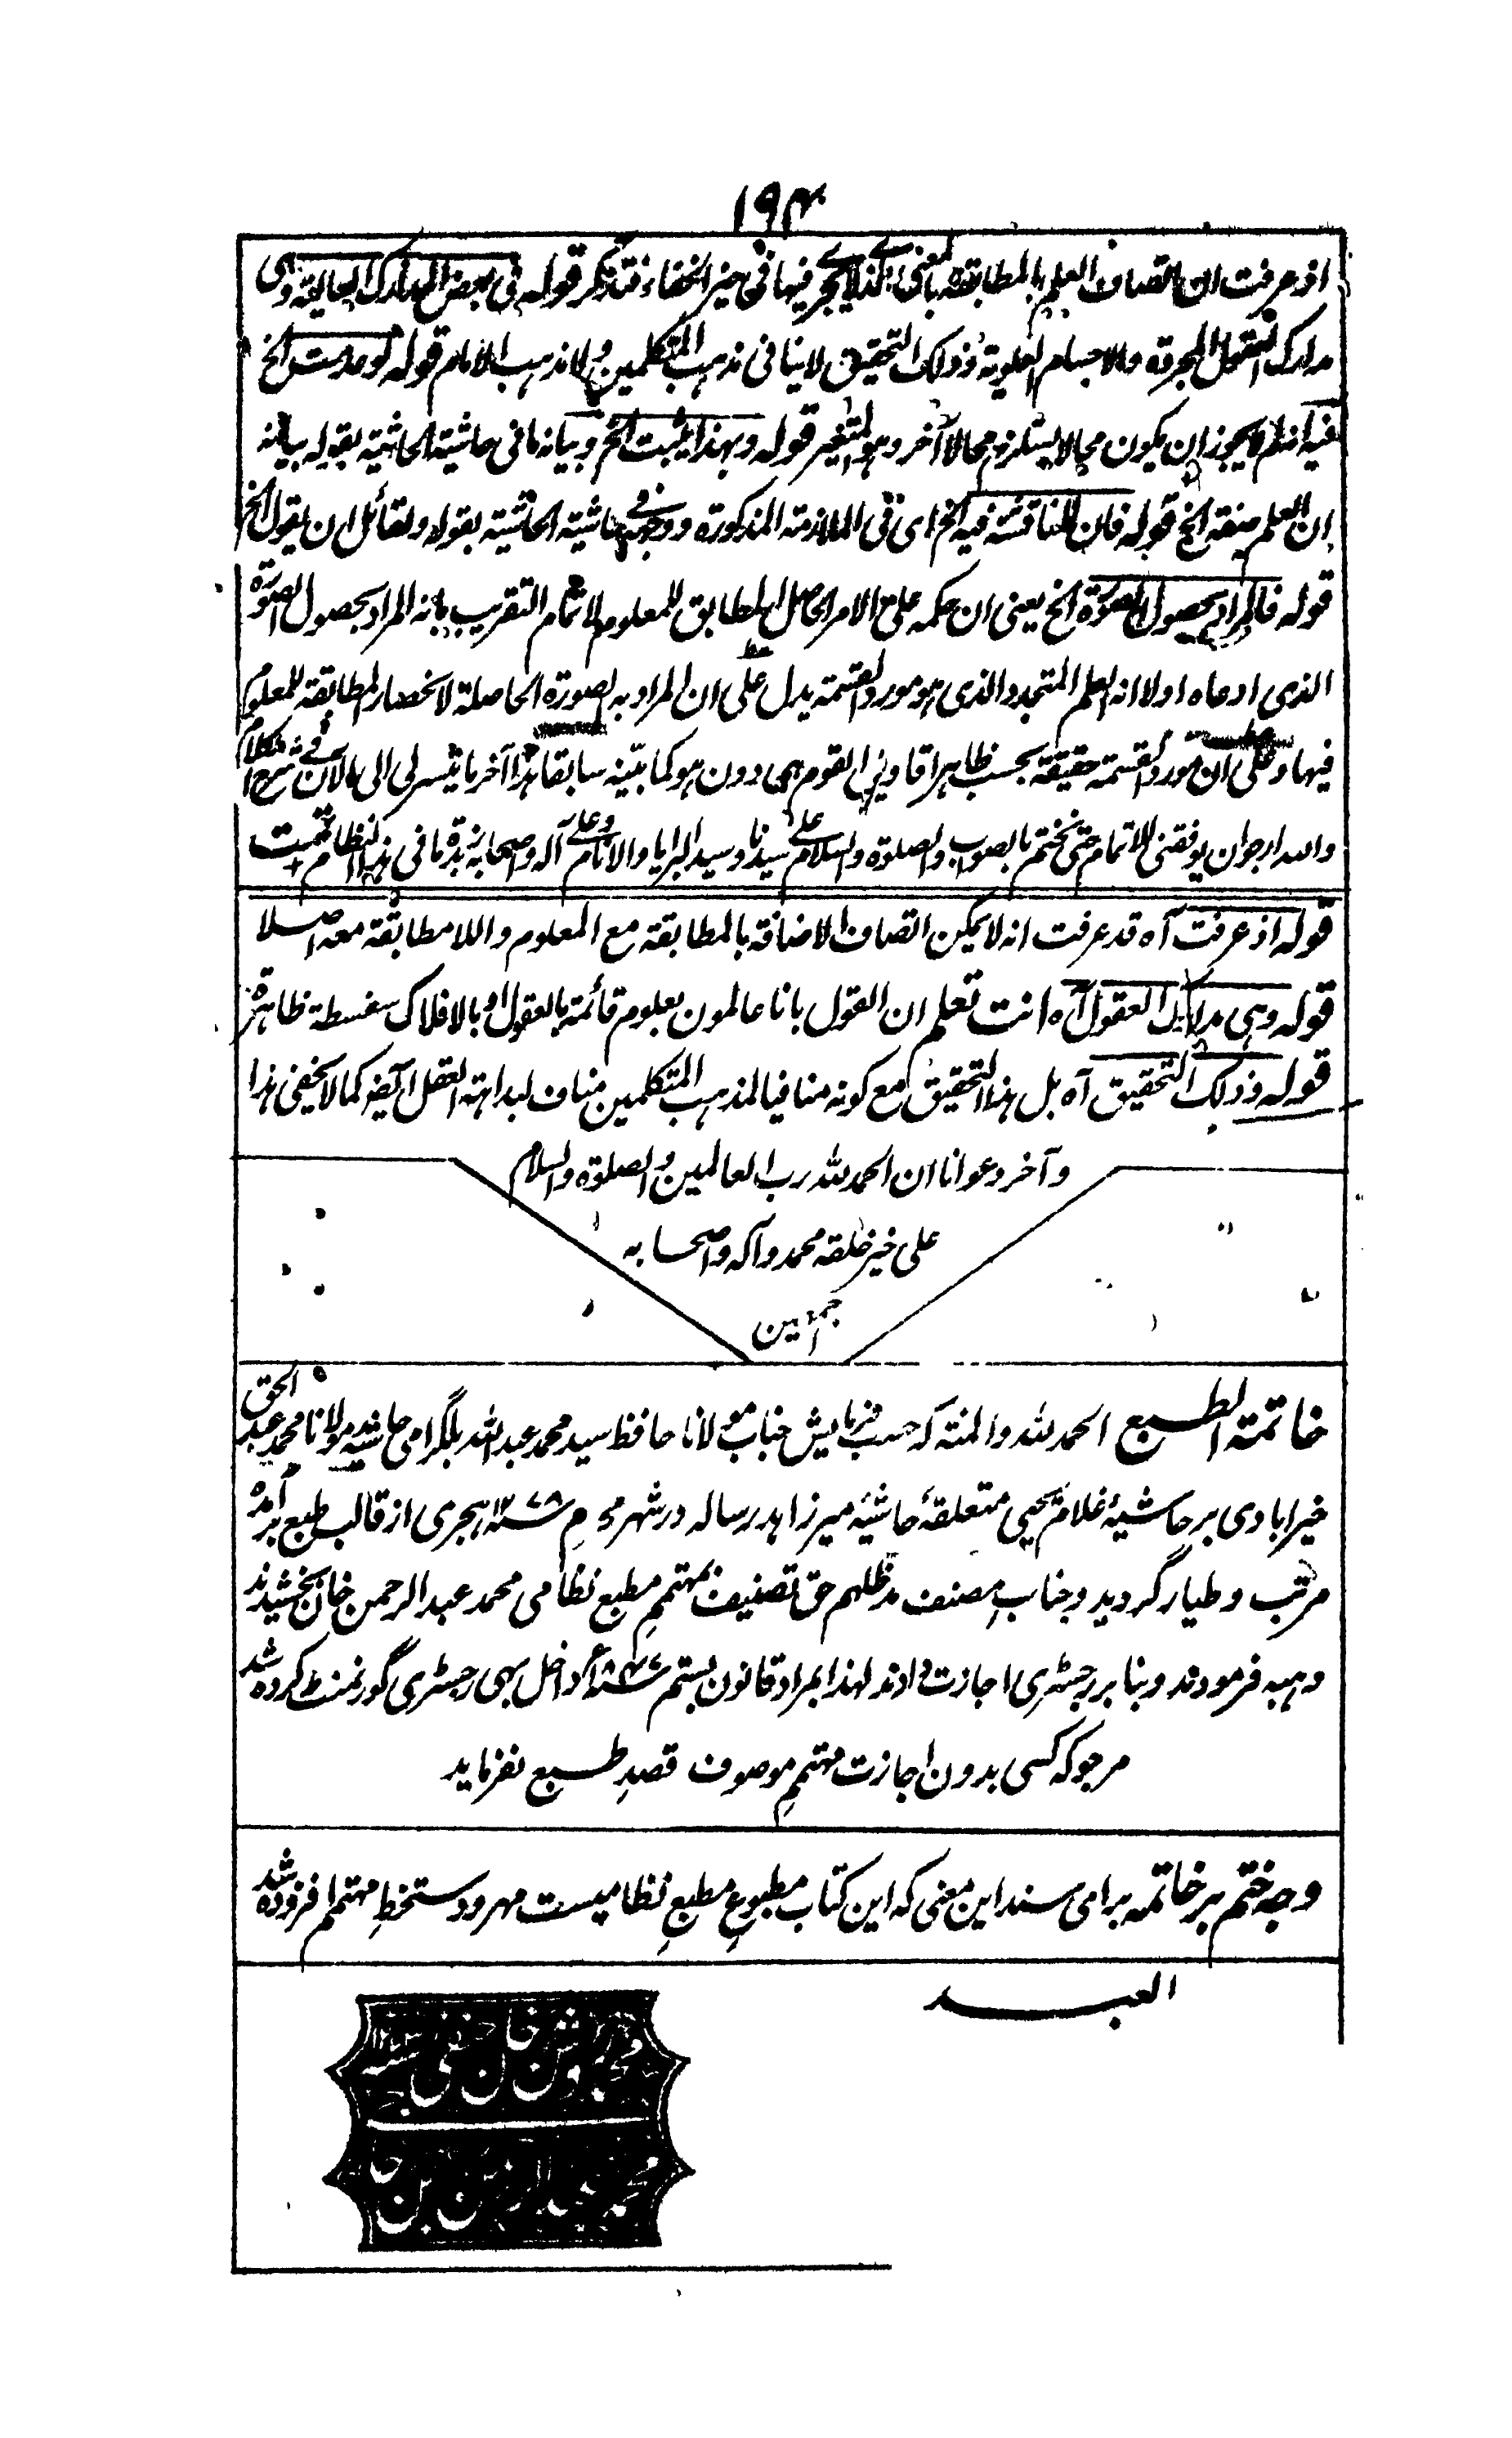 ۱۹۴
اذ عرفت ان اتصاف العلم بالمطابقة بالمعنى الذي يجر فيها في حيز الخفاء فتذكر قوله في بعض المدارك العالية وهى
مدارك العقول المجردة والاجسام العلوية وذلك التحقيق لا ينافى مذهب المتكلمين ولا مذهب الامام قوله لو عدمت الخ
فيه انه لم لا يجوز ان يكون محالا يستلزم محالا آخر وهو التغير قوله وبهذا يثبت الخ وبيانه ما فى حاشية الحاشية بقوله بيانه
ان العلم صفة الخ قوله فان المناقشة فيه الخ اى فى الملازمة المذكورة ووجهه فى حاشية الحاشية بقوله ولقائل ان يقول الخ
قوله فالمراد بحصول الصورة الخ يعنى ان حكمه على الامر الحاصل المطابق للمعلوم لاتمام التقريب بانه المراد بحصول الصورة
الذى ادعاه اولا انه العلم المتجدد الذى هو مورد القسمة يدل على ان المراد به الصورة الحاصلة لانحصار المطابقة للمعلوم
فيها وعلى ان مورد القسمة حقيقة بحسب ظاهر اقاويل القوم هى دون هو كما بينه سابقا هذا آخر ما تيسر لى الى الآن فى شرح الكلام
والله ارجو ان يوفقنى للاتمام حتى نختم بالصواب والصلوة والسلام على سيدنا وسيد البرايا والانام وعلى آله واصحابه زبدة ما فى هذا النظام تمت
قوله اذ عرفت آه قد عرفت انه لا يمكن اتصاف الاضافة بالمطابقة مع المعلوم واللامطابقة معه اصلا
قوله وهى مدارك العقول آه انت تعلم ان القول بانا عالمون بعلوم قائمة بالعقول او بالافلاك سفسطة ظاهرة
قوله وذلك التحقيق آه بل هذا التحقيق مع كونه منافيا لمذهب المتكلمين مناف لبداهة العقل ايضر كما لا يخفى هذا
وآخر دعوانا ان الحمد لله رب العالمين والصلوة والسلام
على خير خلقه محمد وآله واصحابه
اجمعين
خاتمة الطبع الحمد لله والمنة كه حسب فرمايش جناب مولانا حافظ سيد محمد عبد الله بلگرامى حاشيه مولانا محمد عبد الحق
خيرابادى بر حاشيهٔ غلام يحيى متعلقهٔ حاشيهٔ ميرزاهد رساله در شهر محرم ۱۲۷۸ هجرى از قالب طبع برآمده
مرتب و طيار گرديد و جنابِ مصنف مدظلهم حق تصنيف بمهتممِ مطبع نظامى محمد عبد الرحمن خان بخشيدند
وهبه فرمودند و بنا بر رجسٹرى اجازت دادند لهذا بمراد قانون بستم ۱۸۴۷ء داخل بهى رجسٹرى گورنمنٹ كرده شد
مرجو كه كسى بدون اجازت مهتممِ موصوف قصدِ طبع نفرمايد
وجه ختم بر خاتمه براى سند اين معنى كه اين كتاب مطبوعِ مطبعِ نظاميست مهر و دستخطِ مهتمم افزوده شد
العبد